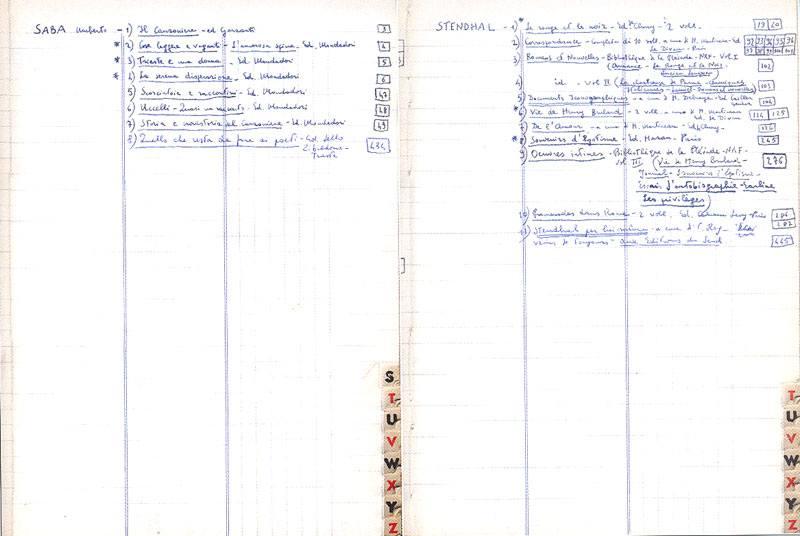 SABA Umberto - 1) Il Canzoniere - ed Garzanti 3
* 2) Cose leggere e vaganti - L'amorosa spina - Ed. Mondadori 4
* 3) Trieste e una donna - Ed. Mondadori 5
* 4) La serena disperazione - Ed. Mondadori 6
5) Scorciatoie e raccontini - Ed. Mondadori 47
6) Uccelli - Quasi un racconto - Ed. Mondadori 48
7) Storia e cronistoria del Canzoniere - Ed. Mondadori 49
8) Quello che resta da fare ai poeti - Ed. dello 434
Zibaldone -
Trieste
S
T
U
V
W
X
Y
Z
STENDHAL - 1) * Le rouge et le noir - Ed. Cluny - 2 volt. 19 20
2) Correspondance - Completa da 10 voll. a cura di H. Martineau - Ed.
Le Divan - Paris
3) Romans et Nouvelles - Bibliothèque de la Pléiade - NRF - Vol. I 102
(Armance - Le Rouge et le Noir -
Lucien Leuwen)
4) id - vol II (La chartreuse de Parme - Chroniques 103
Italiennes - Lamiel - Romans et nouvelles)
5) Documents Iconographiques - a cura di 104
* 6) Vie de Henry Brulard - 2 voll. a cura di H. Martineau 124 125
Ed. Le Divan
7) De l'Amour - a cura di H. Martineau - Ed. Cluny
* 8) Souvenirs d'Egotisme - Ed. - Paris 245
9) Oeuvres intimes - Bibliothèque de la Pléiade - N.R.F.
Vol. III (Vie de Henry Brulard - 276
Journal - Souvenirs d'Egotisme -
Essais d'autobiographie -
Les privilèges)
10) Promenades dans Rome - 2 volt. Ed. Calmann Levy - Paris 286
287
11) Stendhal par lui même - a cura di
- aux Editions du Seuil 465
T
U
V
W
X
Y
Z